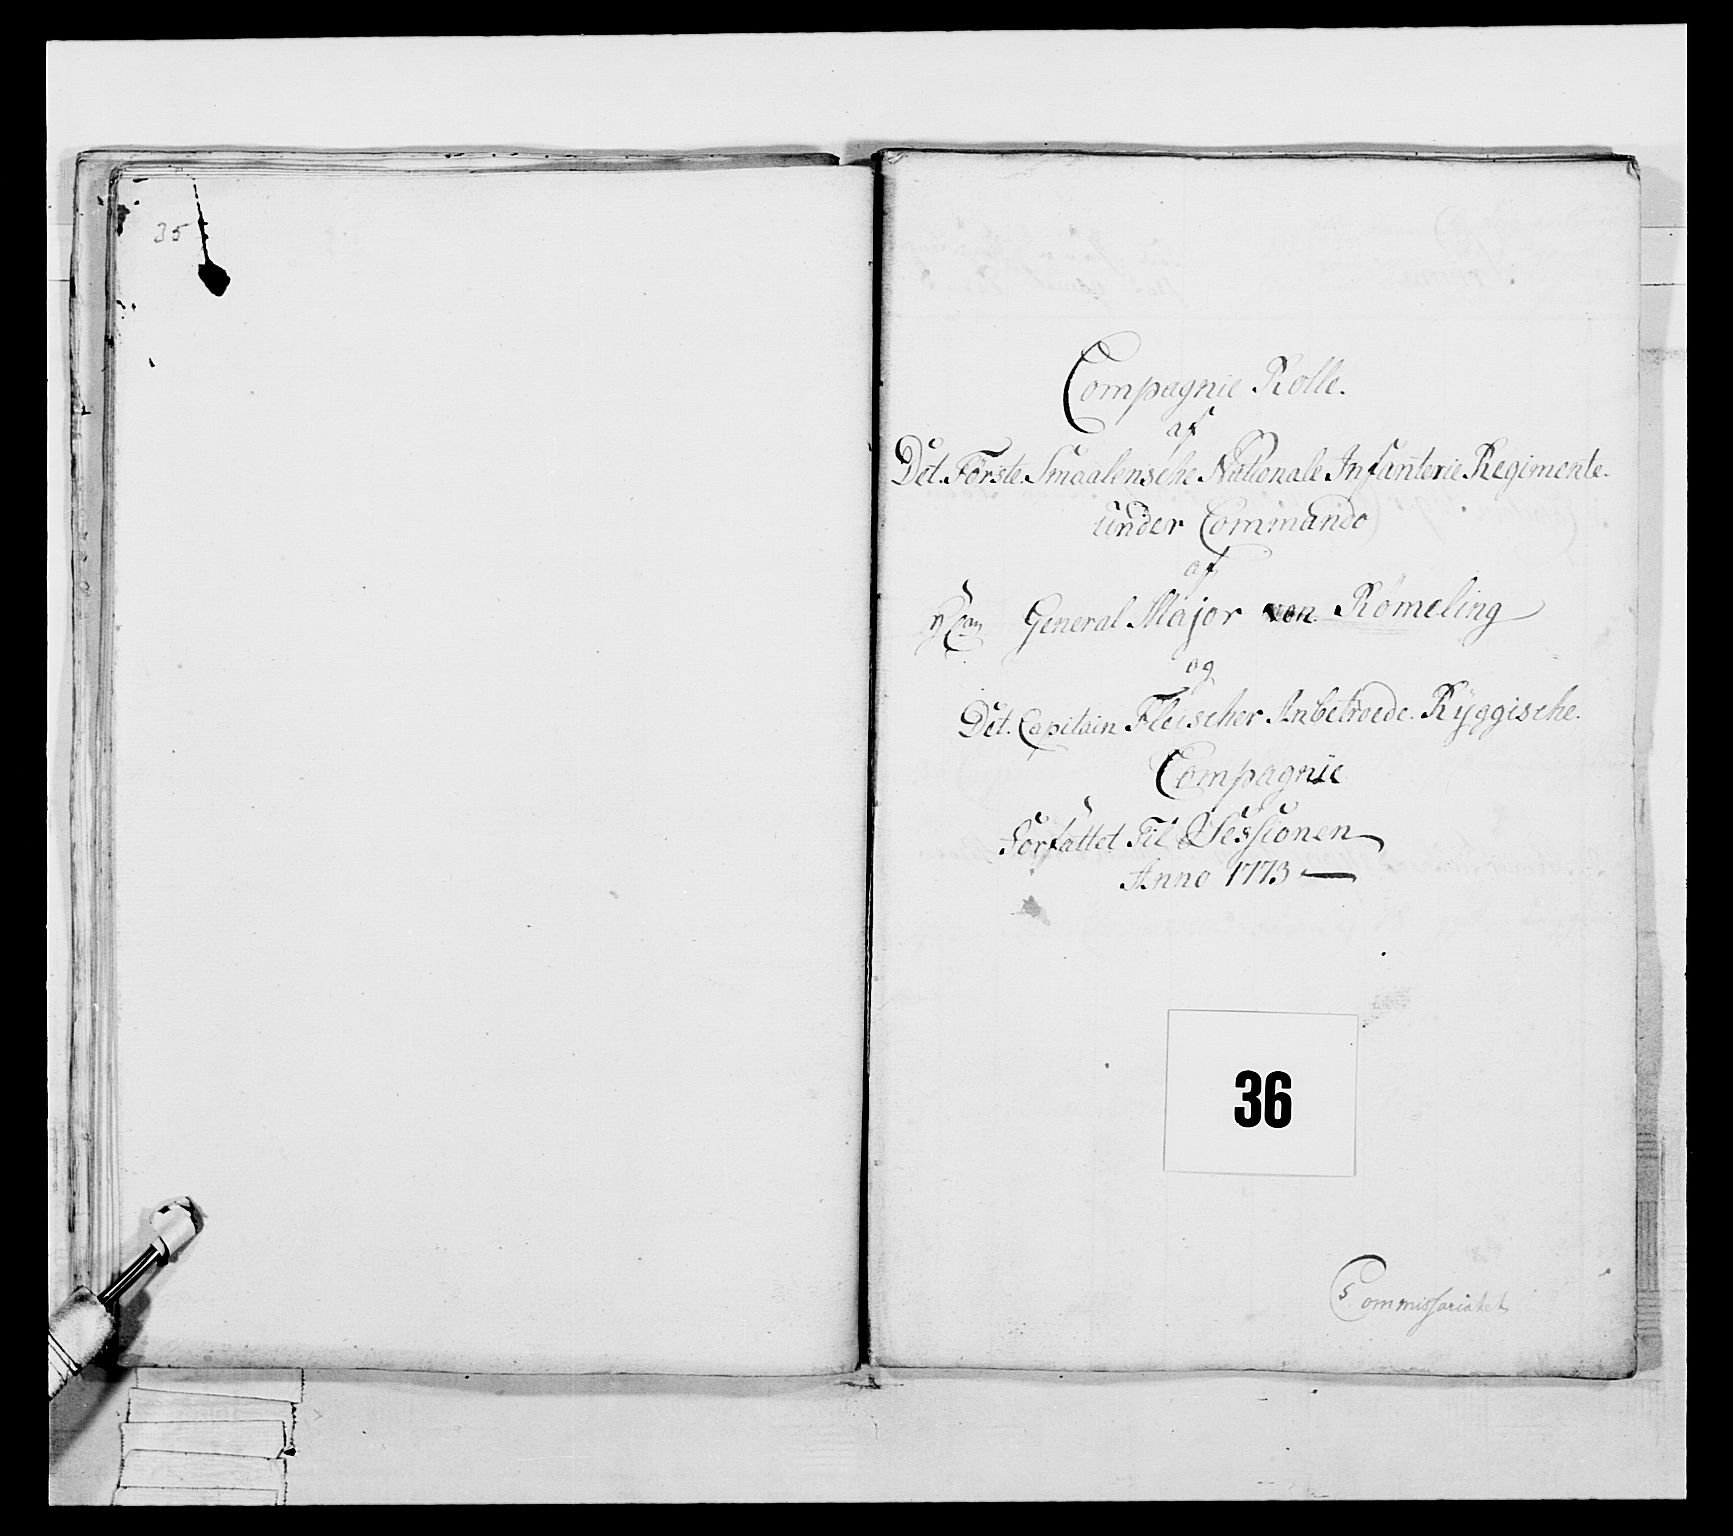 35
Compagnie Rolle.
af
Det Første Smaalensche Nationale Infanterie Regimente.
under Commando
af
General Major von Römeling
og
Det Capitain Fleischer Anbetroede Ryggische
Compagnie
Forfattet Til Sessionen
Anno 1773
36
Commissariatet